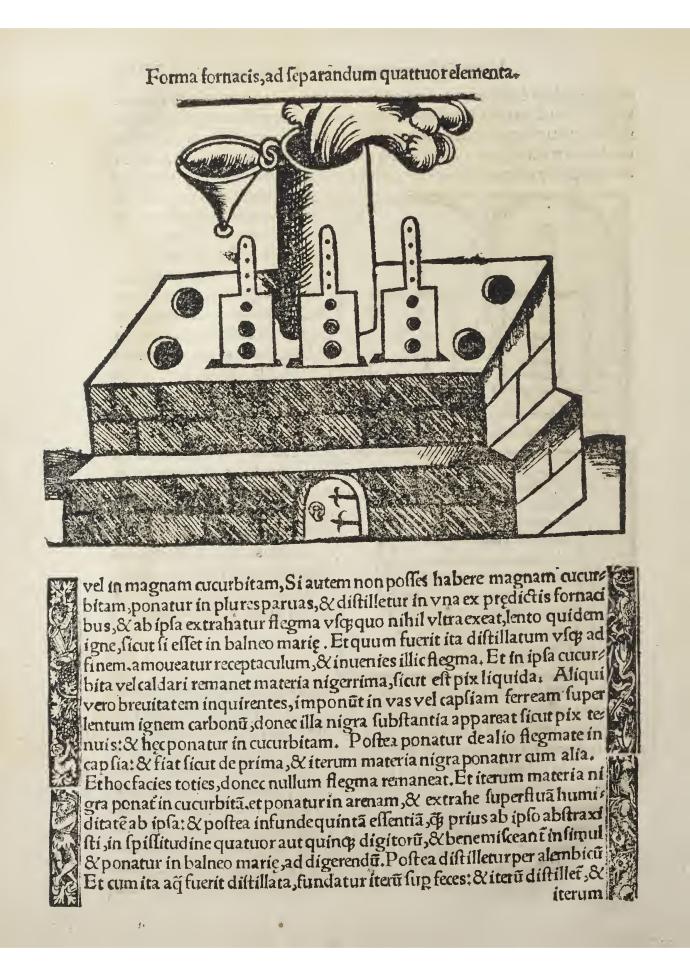 Forma fornacis,ad ſeparandum quattuor elementa.
vel in magnam cucurbitam,Si autem non poſſes habere magnam cucur⸗
bitam,ponatur in plures paruas,& diſtilletur in vna ex prędictis fornaci
bus,& ab ipſa extrahatur flegma vſq; quo nihil vltra exeat,lento quidem
igne,ſicut ſi eſſet in balneo marię . Et quum fuerit ita diſtillatum vſq; ad
finem.amoueatur receptaculum,& inuenies illic flegma. Et in ipſa cucur⸗
bita vel caldari remanet materia nigerrima,ſicut eſt pix liquida. Aliqui
vero breuitatem inquirentes,imponūt in vas vel capſiam ferream ſuper
lentum ignem carbonū,donec illa nigra ſubſtantia appareat ſicut pix te⸗
nuis:& hęc ponatur in cucurbitam. Poſtea ponatur de alio flegmate in
capſia:& fiat ſicut de prima,& iterum materia nigra ponatur cum alia.
Et hoc facies toties,donec nullum flegma remaneat.Et iterum materia ni
gra ponat̃ in cucurbitā.et ponatur in arenam,& extrahe ſuperfluā humi⸗
ditatē ab ipſa:& poſtea infunde quintā eſſentiā,ꝙ̃ prius ab ipſo abſtraxi
ſti,in ſpiſſitudine quatuor aut quinq; digitorū,& bene miſceant̃ inſimul
& ponatur in balneo marię,ad digerendū.Poſtea diſtilletur per alembicū
Et cum ita aq̄ fuerit diſtillata,fundatur iterū ſup feces:& iterū diſtillet̃,&
iterum